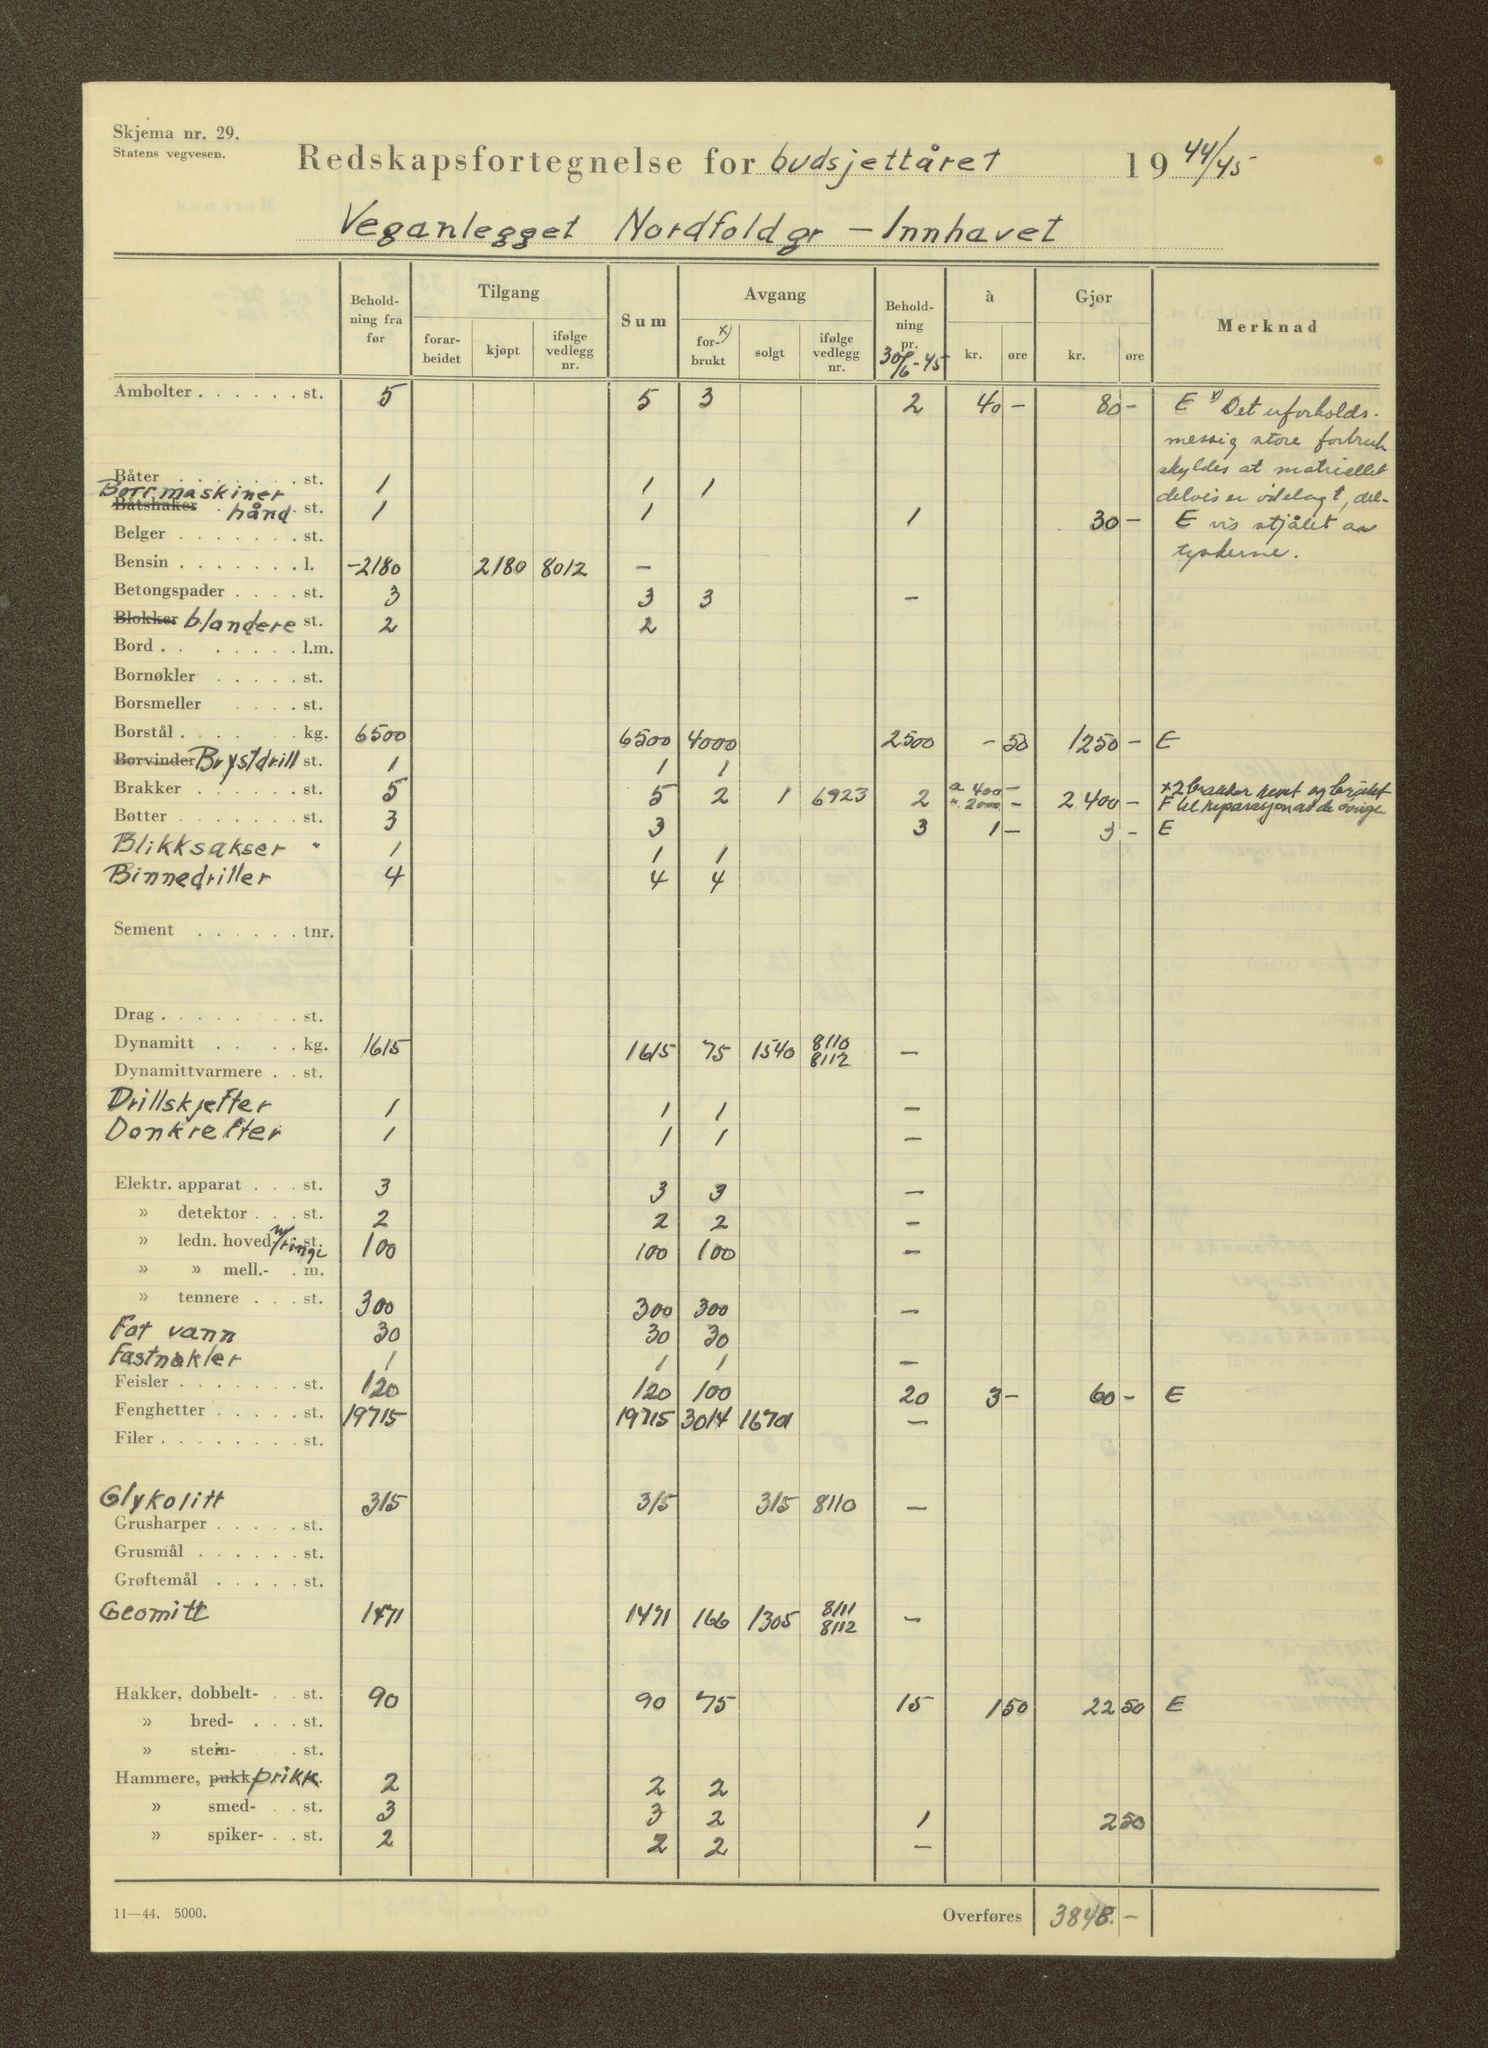 Skjema nr. 29.
Statens vegvesen.
Redskapsfortegnelse for budsjettåret 19 44/45
Veganlegget Nordfoldgr — Innhavet
Behold-ning fra før | Tilgang: forar-beidet, kjøpt, ifølge vedlegg nr. | Sum | Avgang: for-brukt x), solgt, ifølge vedlegg nr. | Behold-ning pr. 30/6-45 | à kr. øre | Gjør kr. øre | Merknad
Ambolter . . . . . . st. 5 5 3 2 40 — 80 — E x) Det uforholds-
messig store forbruk
skyldes at matriellet
Båter . . . . . . . st. 1 1 1 delvis er ødelagt, del-
Borrmaskiner
Båtshaker hånd . st. 1 1 1 30 — E vis stjålet av
Belger . . . . . . . st. tyskerne.
Bensin . . . . . . . l. -2180 2180 8012 —
Betongspader . . . . st. 3 3 3 —
Blokker blandere st. 2 2
Bord . . . . . . . l.m.
Bornøkler . . . . . st.
Borsmeller . . . . st.
Borstål . . . . . kg. 6500 6500 4000 2500 — 50 1250 — E
Borvinder Brystdrill st. 1 1 1
Brakker . . . . . . st. 5 5 2 1 6923 2 a 400 — " 2000 — 2400 — x 2 brakker revet og brukt
F til reparasjon av de øvrige
Bøtter . . . . . . . st. 3 3 3 1 — 3 — E
Blikksakser " 1 1 1
Binnedriller 4 4 4
Sement . . . . . . tnr.
Drag . . . . . . . st.
Dynamitt . . . . kg. 1615 1615 75 1540 8110 8112 —
Dynamittvarmere . . st.
Drillskjefter 1 1 1 —
Donkrefter 1 1 1 —
Elektr. apparat . . . st. 3 3 3 —
» detektor . . . st. 2 2 2 —
» ledn. hoved- st. 100 100 100 —
» » mell.- . m.
» tennere . . . st. 300 300 300 —
Fat vann 30 30 30
Fastnøkler 1 1 1 —
Feisler . . . . . . . st. 120 120 100 20 3 — 60 — E
Fenghetter . . . . . st. 19715 19715 3014 16701 —
Filer . . . . . . . . st.
Glykolitt 315 315 315 8110 —
Grusharper . . . . . st.
Grusmål . . . . . . st.
Grøftemål . . . . . st.
Geomitt 1471 1471 166 1305 8111 8112 —
Hakker, dobbelt- . . st. 90 90 75 15 1 50 22 50 E
» bred- . . . st.
» stein- . st.
Hammere, pukk prikk. 2 2 2
» smed- . . st. 3 3 2 1 2 50
» spiker- . . st. 2 2 2 —
11—44. 5000.
Overføres 3848. —